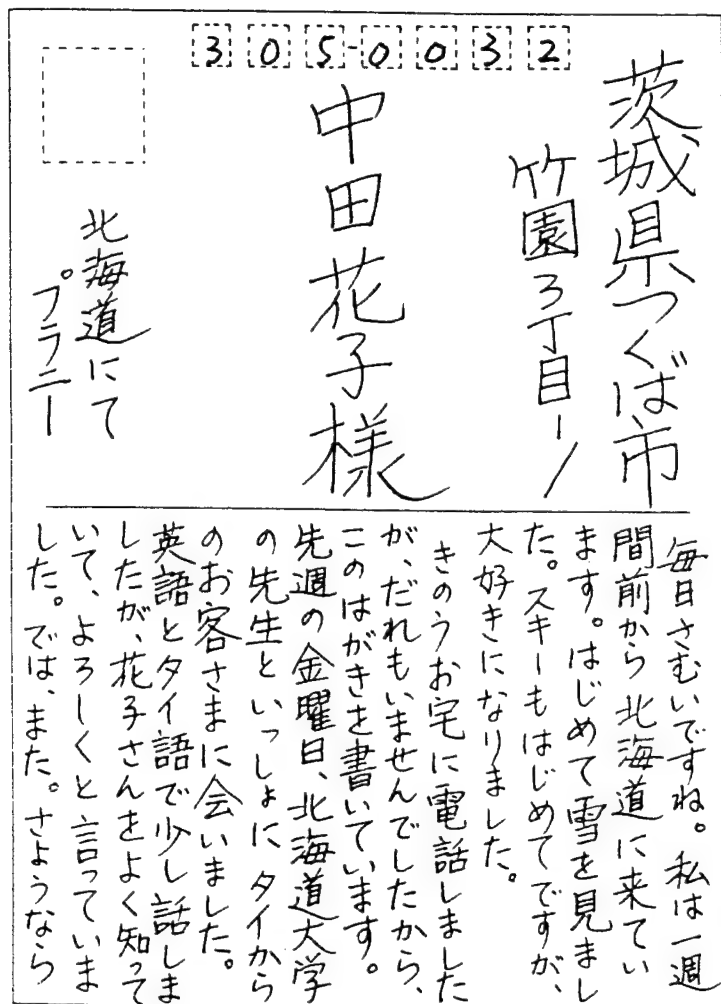 305-0032
茨城県つくば市
竹園3丁目-1
中田花子様
北海道にて
プラニー
毎日さむいですね。私は一週
間前から北海道に来てい
ます。はじめて雪を見まし
た。スキーもはじめてですが、
大好きになりました。
きのうお宅に電話しました
が、だれもいませんでしたから、
このはがきを書いています。
先週の金曜日、北海道大学
の先生といっしょにタイから
のお客さまに会いました。
英語とタイ語で少し話しま
したが、花子さんをよく知って
いて、よろしくと言っていま
した。では、また。さようなら